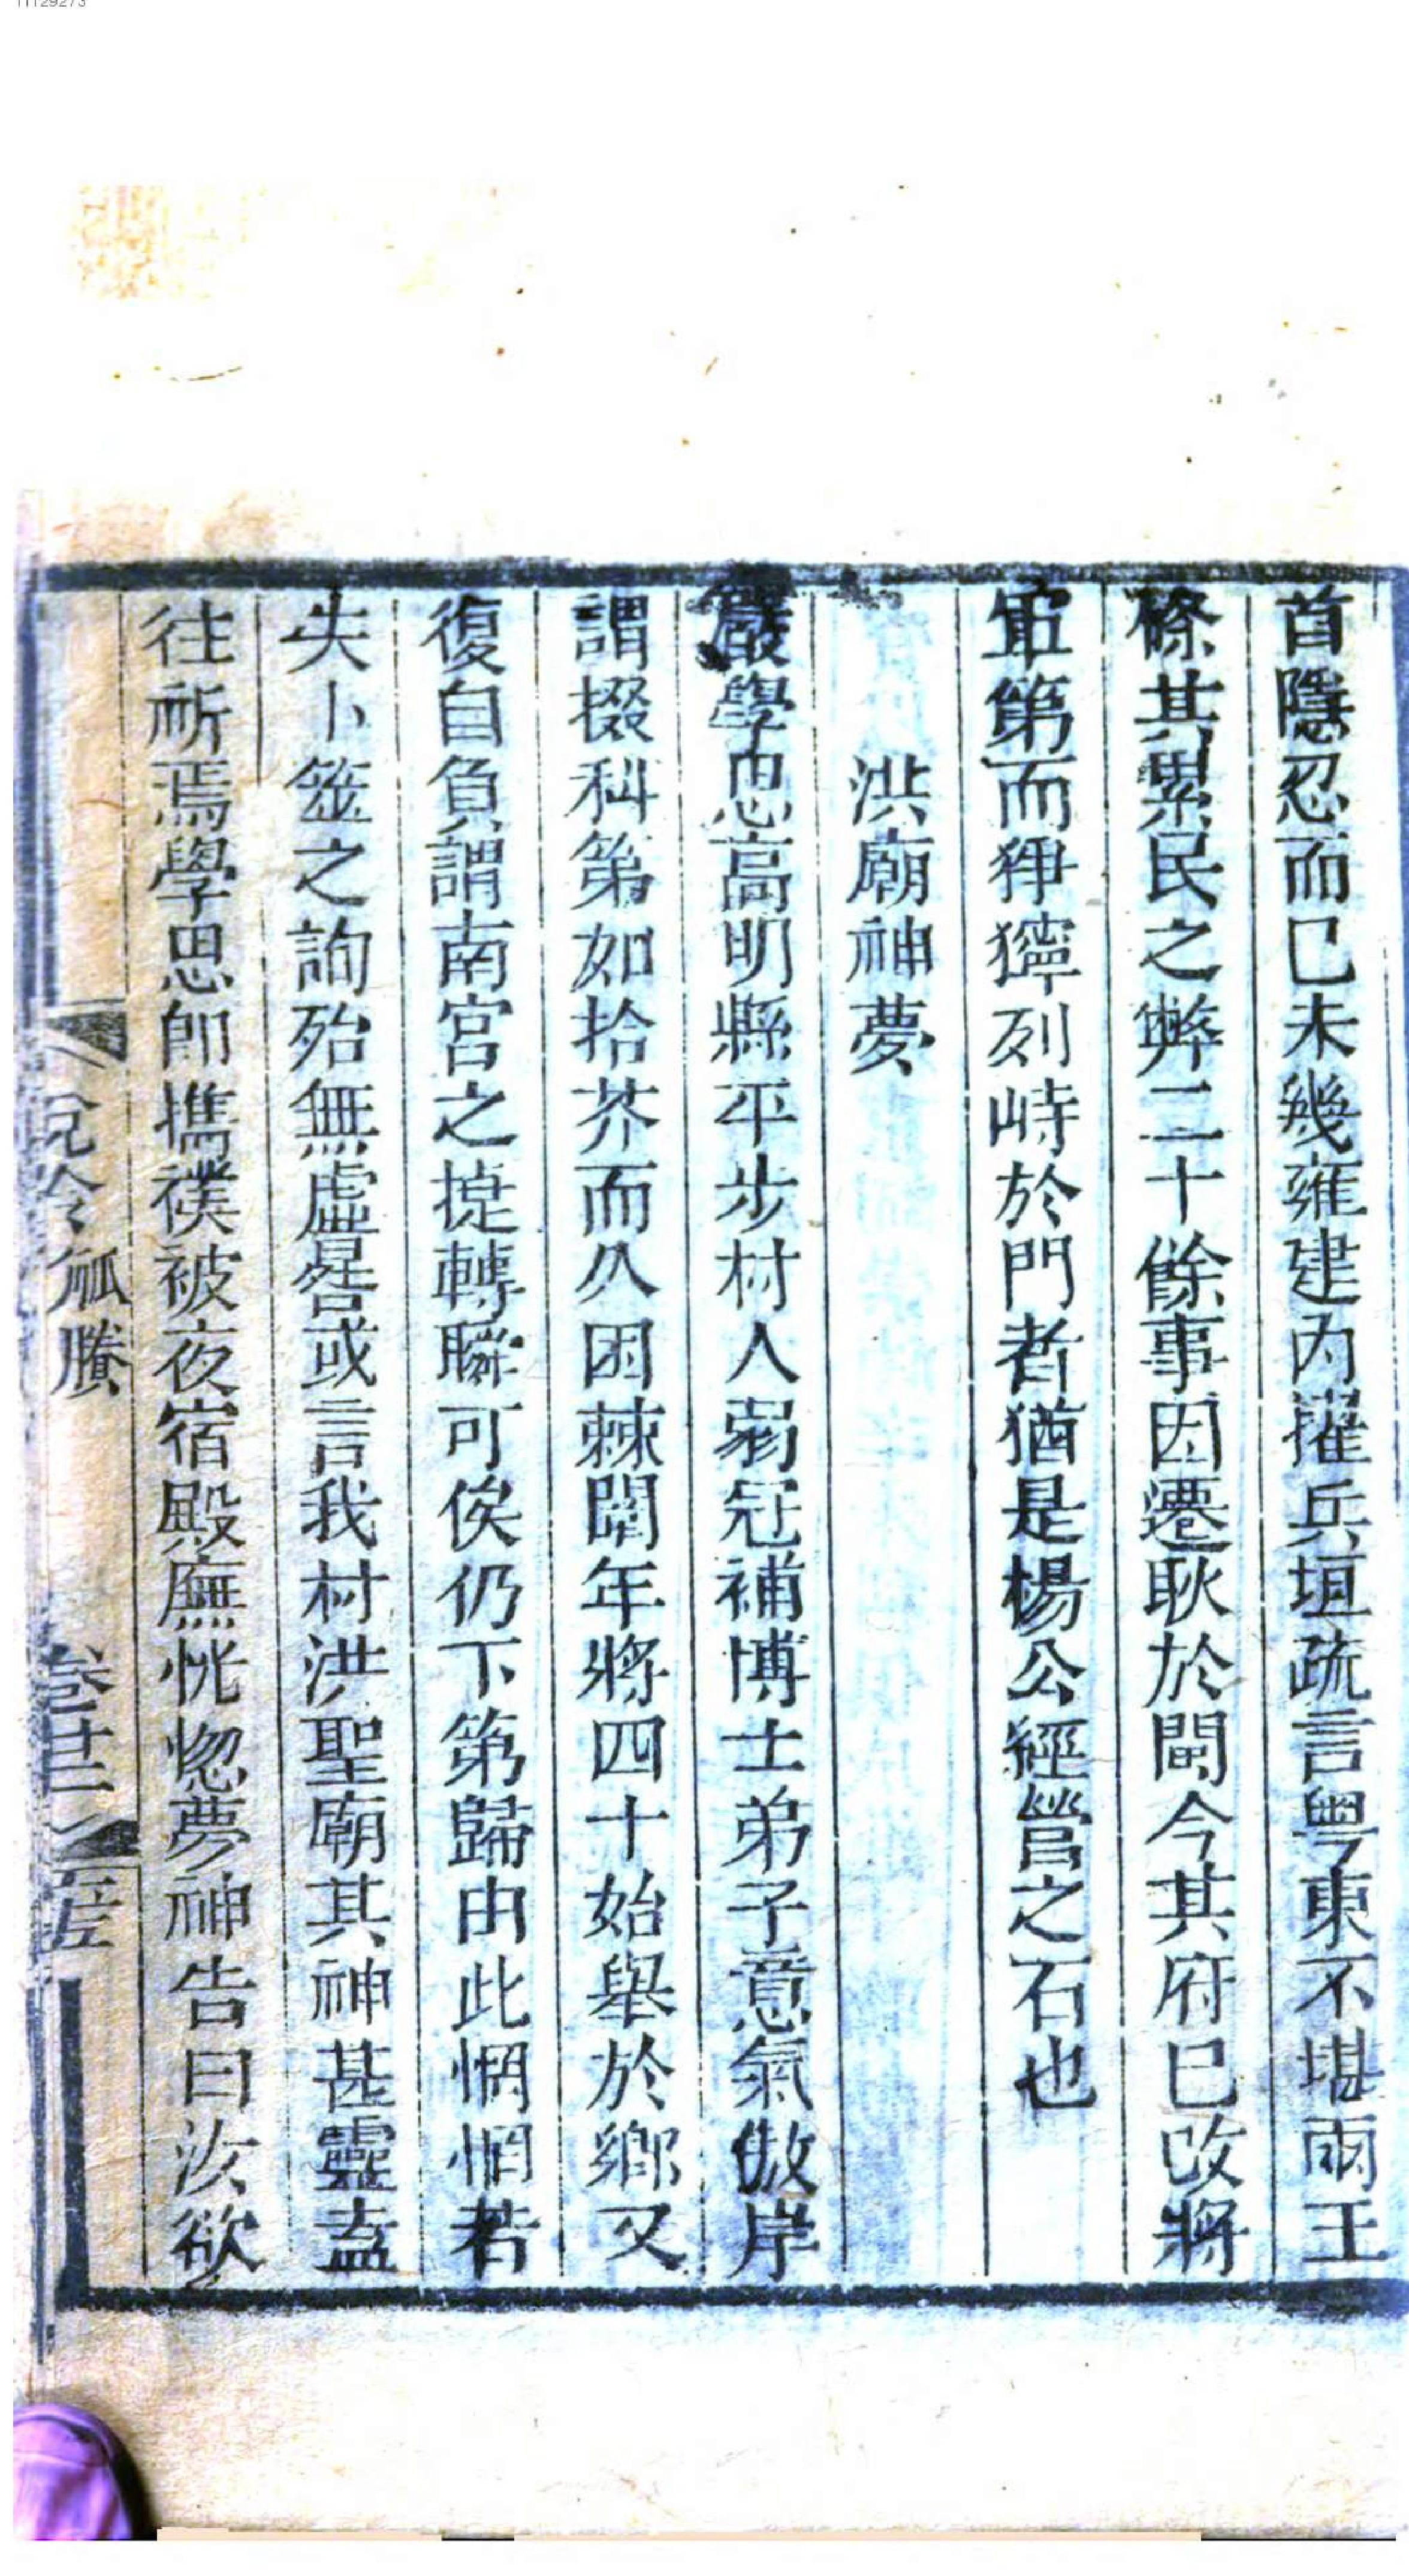 首隱忍而已未幾雍建内擢兵垣疏言粤東不堪兩王
條其累民之弊二十餘事因遷耿於閩今其府已改將
軍第而猙獰列峙於門者猶是楊公經營之石也
洪廟神夢
嚴學思高明縣平步村人弱冠補博士弟子意氣傲岸
謂掇科第如拾芥而久困棘闈年將四十始舉於鄉又
復自負謂南宮之捷轉瞬可俟仍下第歸由此惘惘若
失卜筮之詢殆無虛晷或言我村洪聖廟其神甚靈盍
往祈焉學思卽擕襆被夜宿殿廡恍惚夢神告曰汝欲
說鈴 觚賸 卷廿二